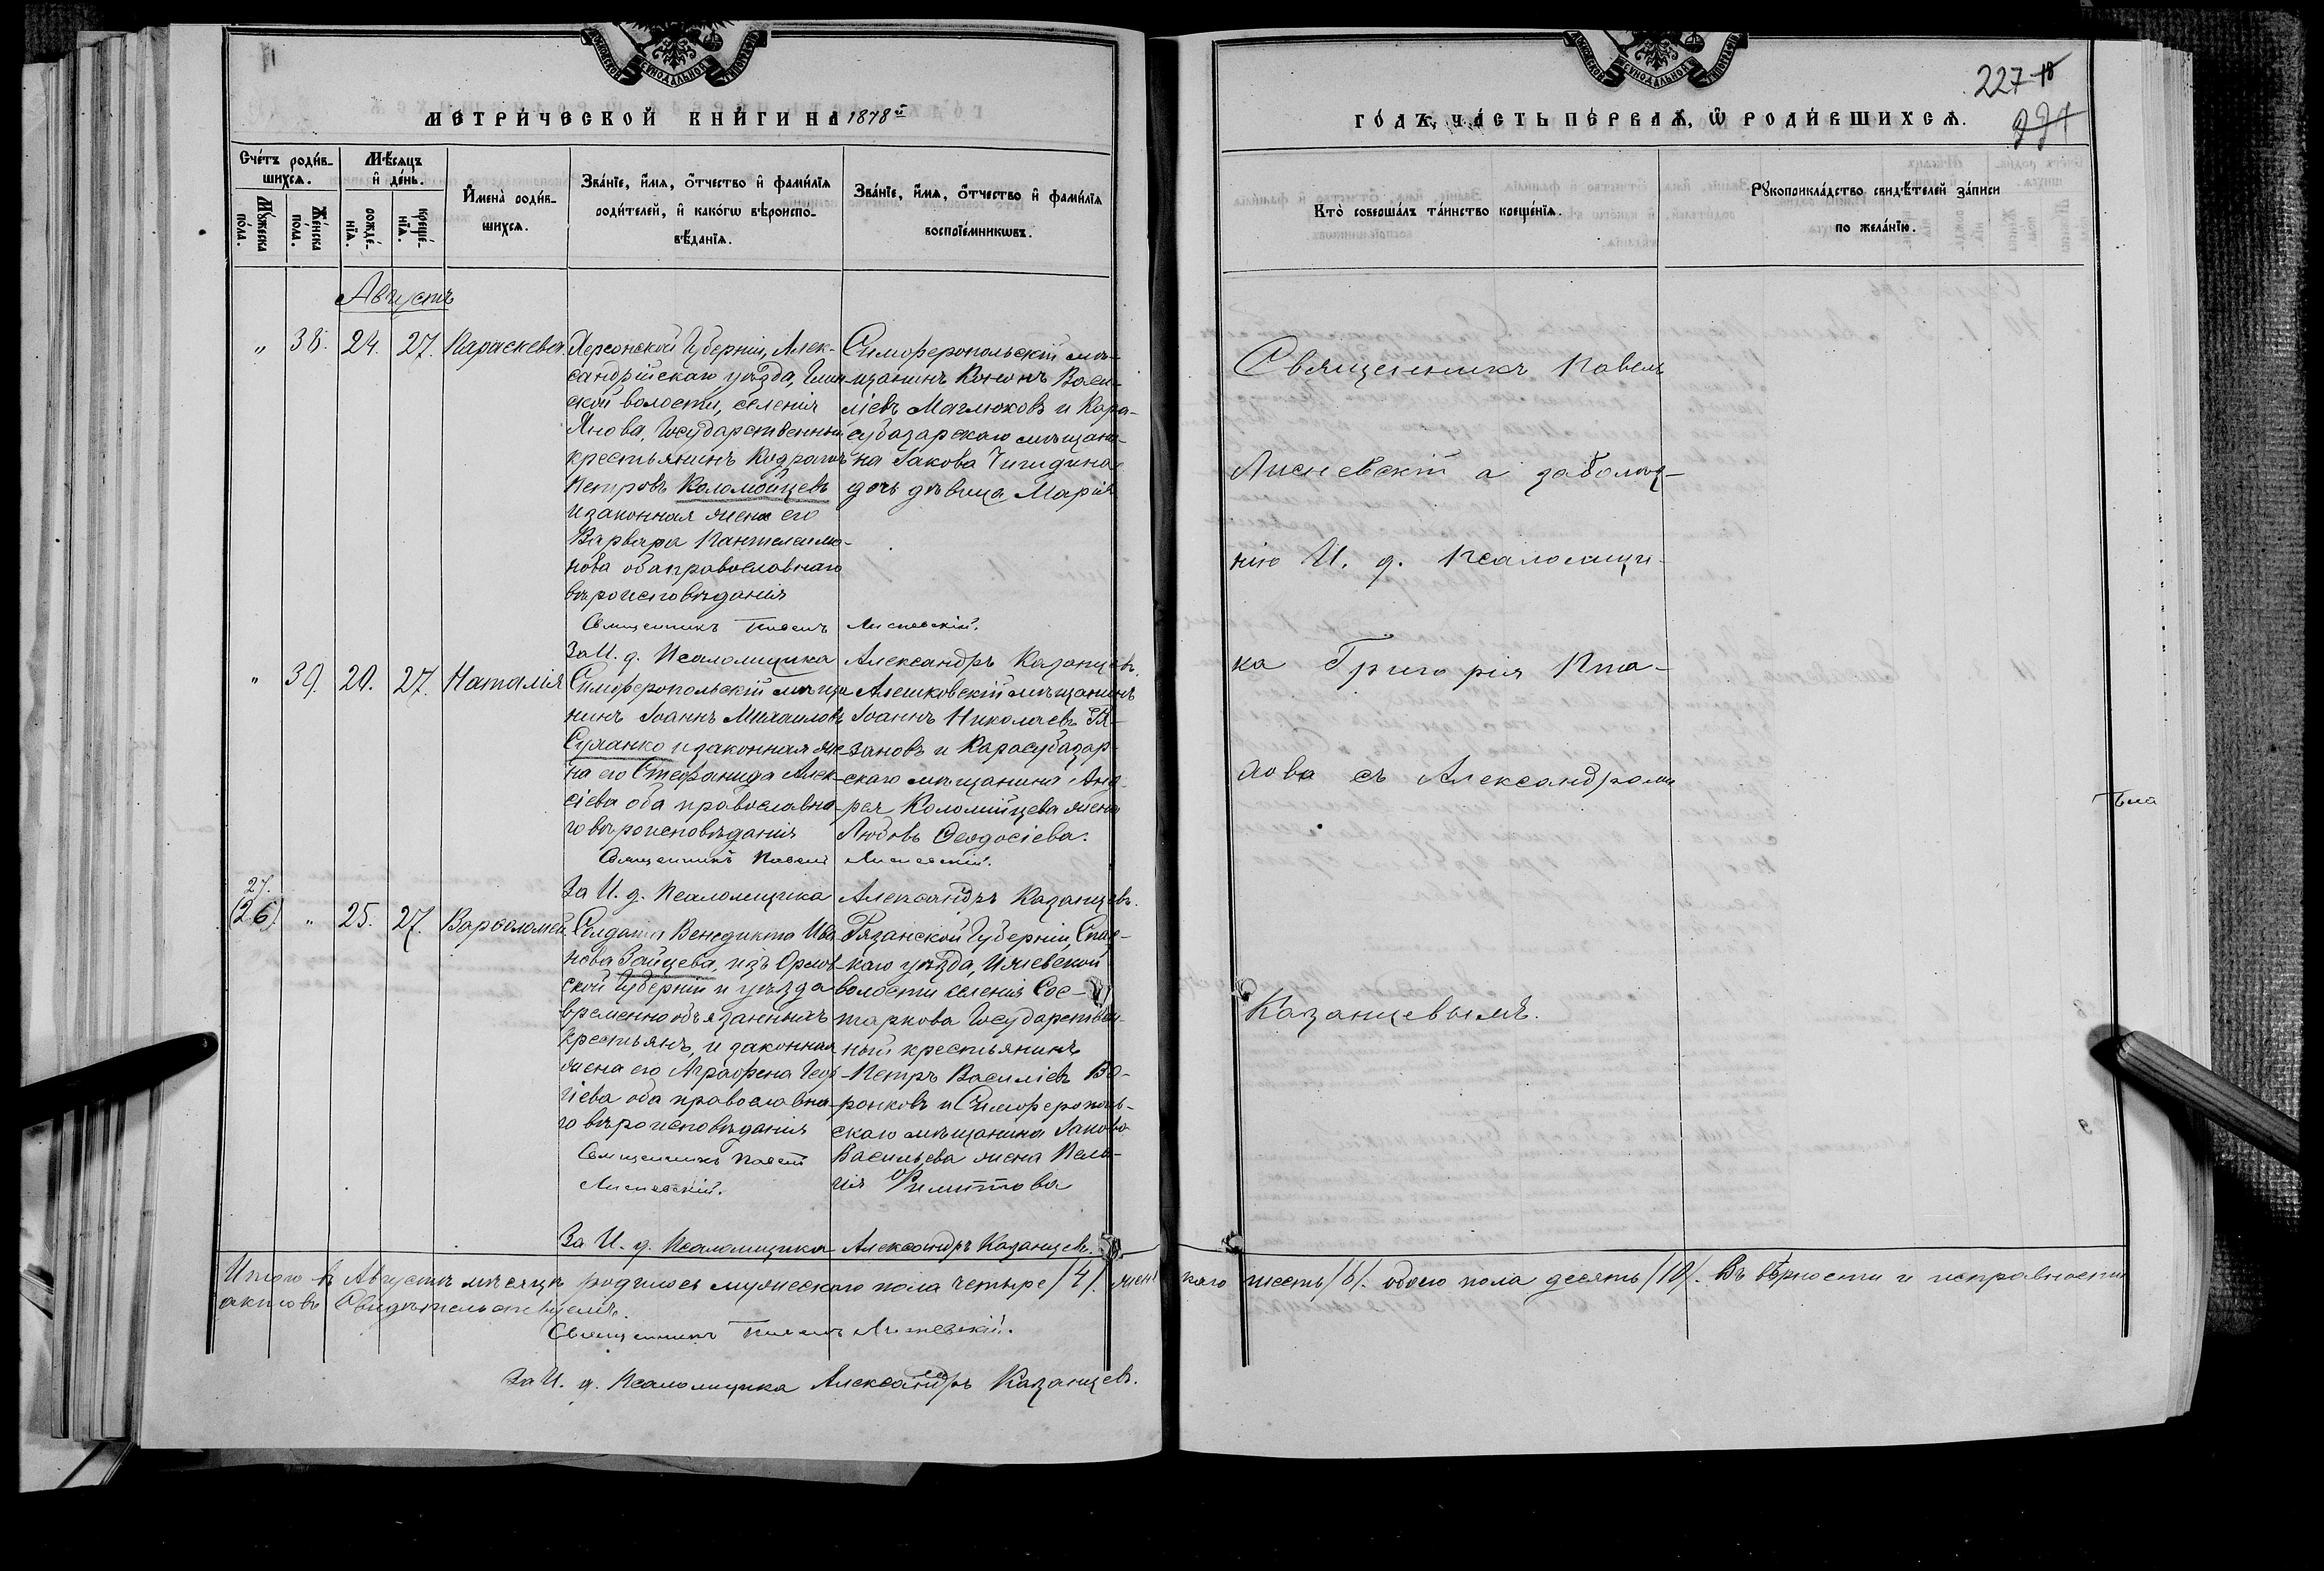 МЕТРИЧЕСКОЙ КНИГИ НА 1878й
Счетъ родившихся.
Мужеска пола.
Женска пола.
Мѣсяцъ и день.
рожденія.
крещенія.
Имена родившихся.
Званіе, имя, отчество и фамилія
родителей, и какогω вѣроиспо-
вѣданія.
Званіе, имя, отчество и фамилія
воспріемникωвъ.
Августъ
" 38. 24. 27. Параскева.
Херсонской Губерніи, Алек-
сандрійскаго уѣзда,
ской волости, селенія
Янова, Государственный
крестьянинъ Кодратъ
Петровъ Коломойцевъ
и законная жена его
Варвара Пантелеимо-
нова оба православнаго
вѣроисповѣданія
Симферопольскій мѣ-
щанинъ Кононъ Васи-
ліевъ Маглюковъ и Кара-
субазарскаго мѣщани-
на Іакова Чигидина
дочь дѣвица Марія
Священникъ Павелъ Лисневскій.
За И. д. Псаломщика Александръ Казанцевъ.
" 39. 20. 27. Наталія
Симферопольскій мѣща
нинъ Іоаннъ Михаиловъ
Суманко и законная же
на его Стефанида Алек-
сіева оба православна-
го вѣроисповѣданія
Алешковскій мѣщанинъ
Іоаннъ Николаевъ Ря-
зановъ и Карасубазар-
скаго мѣщанина Анд-
рея Коломійцева жена
Любовь Ѳеодосіева.
Священникъ Павелъ Лисневскій.
За И. д. Псаломщика Александръ Казанцевъ.
27.
(26) " 25. 27. Варѳоломей
Солдата Венедикта Ива
нова Зайцева, изъ Орлов
ской Губерніи и уѣзда
временнообязанныхъ
крестьянъ, и законная
жена его Аграфена Геор
гіева оба православна-
го вѣроисповѣданія
Священникъ Павелъ
Лисневскій.
Рязанской Губерніи, Спас-
каго уѣзда, Ижевской
волости селенія Сос-
таркова Государствен-
ный крестьянинъ
Петръ Василіевъ Во-
ронковъ и Симферополь-
скаго мѣщанина Іакова
Васильева жена Пела-
гія
За И. д. Псаломщика Александръ Казанцевъ.
Итого въ Августѣ мѣсяцѣ родилось мужескаго пола четыре /4/. женскаго шесть /6/. обоего пола десять /10/. Въ вѣрности и исправности
актовъ Свидѣтельствуемъ.
Священникъ Павелъ Лисневскій.
За И. д. Псаломщика Александръ Казанцевъ.
227
ГОДЪ, ЧАСТЬ ПЕРВАЯ, Ѡ РОДИВШИХСЯ.
Кто совершалъ таинство крещенія.
Рукоприкладство свидѣтелей записи
по желанію.
Священникъ Павелъ
Лисневскій а за
нію И. д. Псаломщи-
ка Григорія Пта-
хова съ Александромъ
Казанцевымъ.